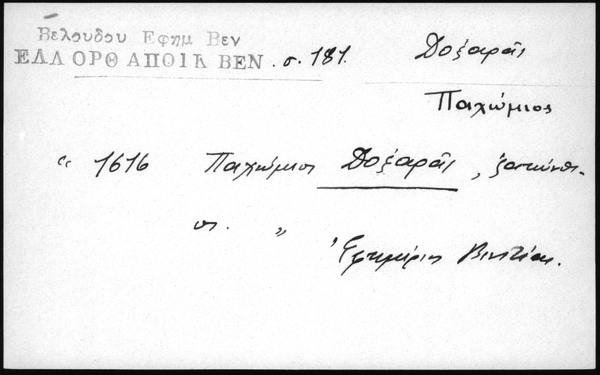 Βελουδου Εφημ Βεν
ΕΛΛ ΟΡΘ ΑΠΟΙΚ ΒΕΝ. σ. 181.
Δοξαρᾶς
Παχώμιος
" 1616 Παχώμιος Δοξαρᾶς,
"
Ἐφημέριος Βενετίας.